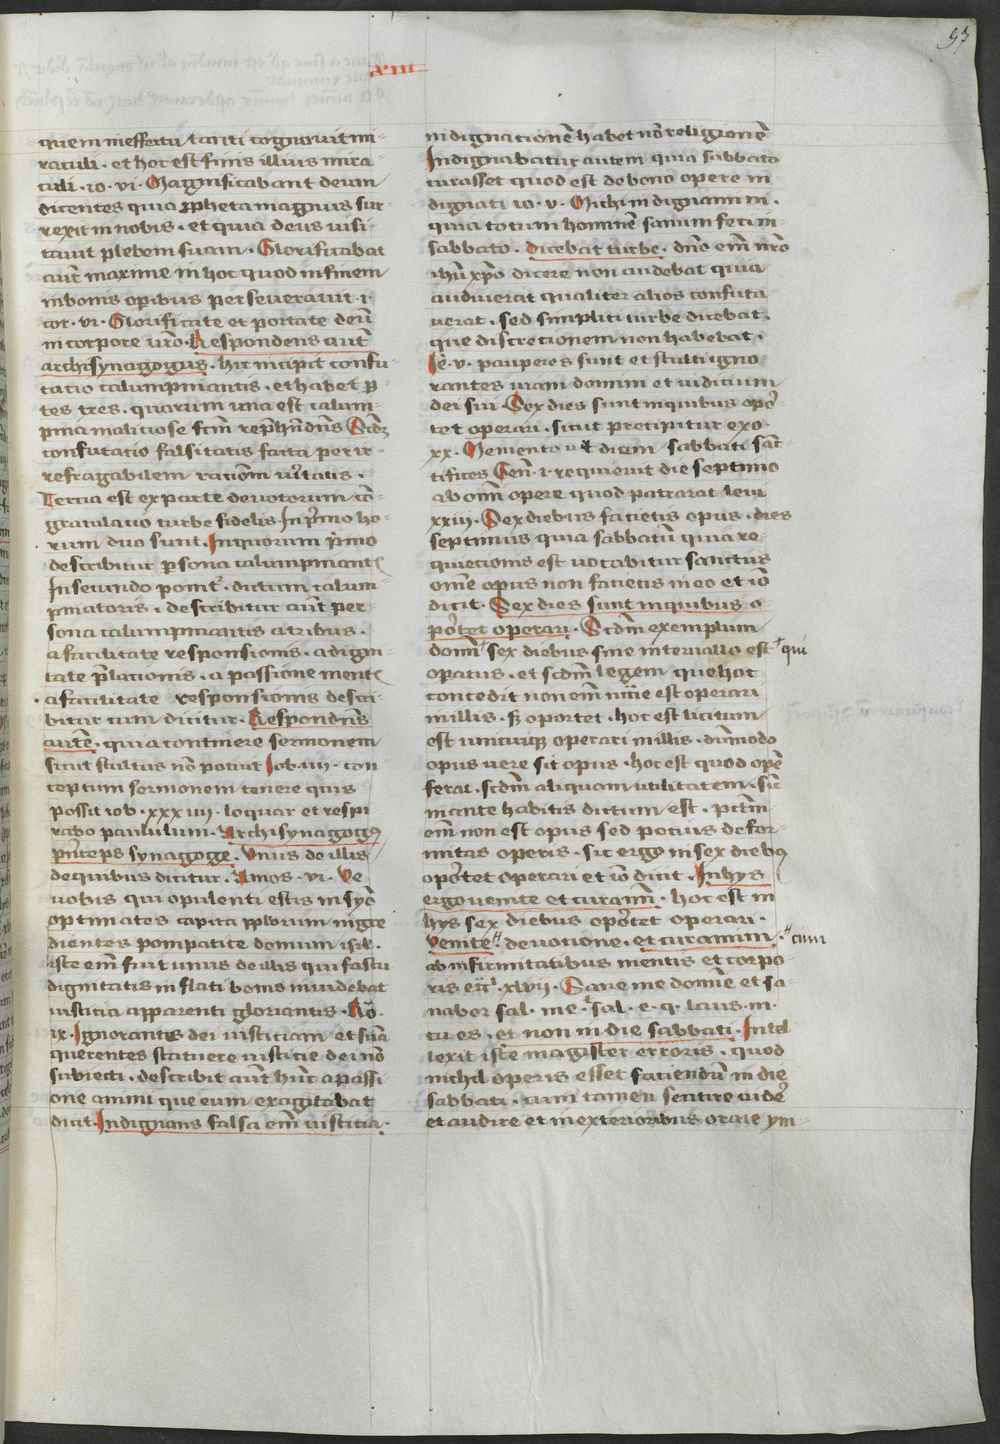 97
xiii
quem in effectu tanti cognovit mi-
raculi · et hoc est finis illius mira-
culi · io · vi · Magnificabant deum
dicentes quia ꝓpheta magnus sur
rexit in nobis · et quia deus visi
tavit plebem suam · Glorificabat
autē maxime in hoc quod in finem
in bonis oꝑibus perseveravit · i ·
cor · vi · Glorificate et portate deū
in corpore vr̄o · Respondens aut̄
archisynagogus · hic incipit confu-
tatio calumpniantis · et habet ꝑ
tes tres · quarum una est calum-
pnia maliciose fcm̄ rep̄hn̄dn̄s Scd̄a
confutatio falsitatis facta per ir-
refragabilem racōm vītatis ·
Tercia est ex parte devotorum cō-
gratulatio turbe fidelis In p̄mo ho-
rum duo sunt · In quorum p̄mo
describitur ꝑsona calumpniant
In secundo ponit² · dictum calum-
pniatoris · describitur aūt per-
sona calumpniantis a tribus ·
a facilitate responsionis · a digni-
tate p̄lationis · a passione ment
a facilitate responsionis descri-
bitur cum dicitur · Respondn̄s
autē · quia continere sermonem
sicut stultus nō potuit Iob · iiii · con
ceptum sermonem tenere quis
possit iob · xxxiiii · loquar et respi
rabo paululum · Archisynagogꝰ
pn̄ceps synagoge · Unus de illis
de quibus dicitur · Amos · vi · Ve
vobis qui opulenti estis in syō
optimates capita ꝓplorum ingre
dientes pompatice domum isrl̄ ·
iste em̄ fuit unus de illis qui fastu
dignitatis inflati bonis invidebat
iusticia apparenti gloriantis · Rō ·
ix · Ignorantes dei iusticiam et suā
querentes statuere iusticie dei nō
subiecti · describit aūt hūc a passi
one animi que eum exagitabat
dicit · Indignans falsa em̄ iusticia ·
indignationē habet nō religionē
Indignabatur autem quia sabbato
curasset quod est de bono opere in
dignati io · v · Michi indignamini ·
quia totum hominē sanum feci in
sabbato · dicebat turbe · dn̄o em̄ nr̄o
ihū xp̄o dicere non audebat quia
audiverat qualiter alios confuta
verat · sed simplici turbe dicebat ·
que discretionem non habebat ·
Ie · v · pauperes sunt et stulti igno-
rantes viam domini et iudicium
dei sui · Sex dies sunt in quibus opor
tet operari · sicut precipitur exo ·
xx · Memento ut diem sabbati sanc
tifices Gen̄ · i · requievit die septimo
ab om̄i opere quod patrarat levi
xxiii · Sex diebus facietis opus · dies
septimus quia sabbatū quia re
quietionis est vocabitur sanctus
om̄e opus non facietis in eo et iō
dicit · Sex dies sunt in quibus o
portet operari · Scd̄m exemplum
domini sex diebus sine intervallo est qui
opatus · et scd̄m legem que hoc
concedit non em̄ n̄cē est operari
in illis · sꝫ oportet · hoc est licitum
est unicuiqꝫ operari in illis · dūmodo
opus vere sit opus · hoc est quod opē
ferat · scd̄m aliquam utilitatem · sic
in ante habitis dictum est · pctm̄
em̄ non est opus sed potius defor-
mitas operis · sic ergo in sex diebꝰ
oportet operari et iō dicit · In hys
ergo venite et curamī · hoc est in
hys sex diebus oportet operari ·
venite devotione · et curamini · cum
ab infirmitatibus mentis et corpo-
ris · xlvii · Sane me domine et sa-
nabor sal · me · sal · e · q · laus · m ·
tu es · et non in die sabbati · Intel
lexit iste magister erroris · quod
nichil operis esset faciendū in die
sabbati · cum tamen sentire vider
et audire et in exterioribus orāe ym-